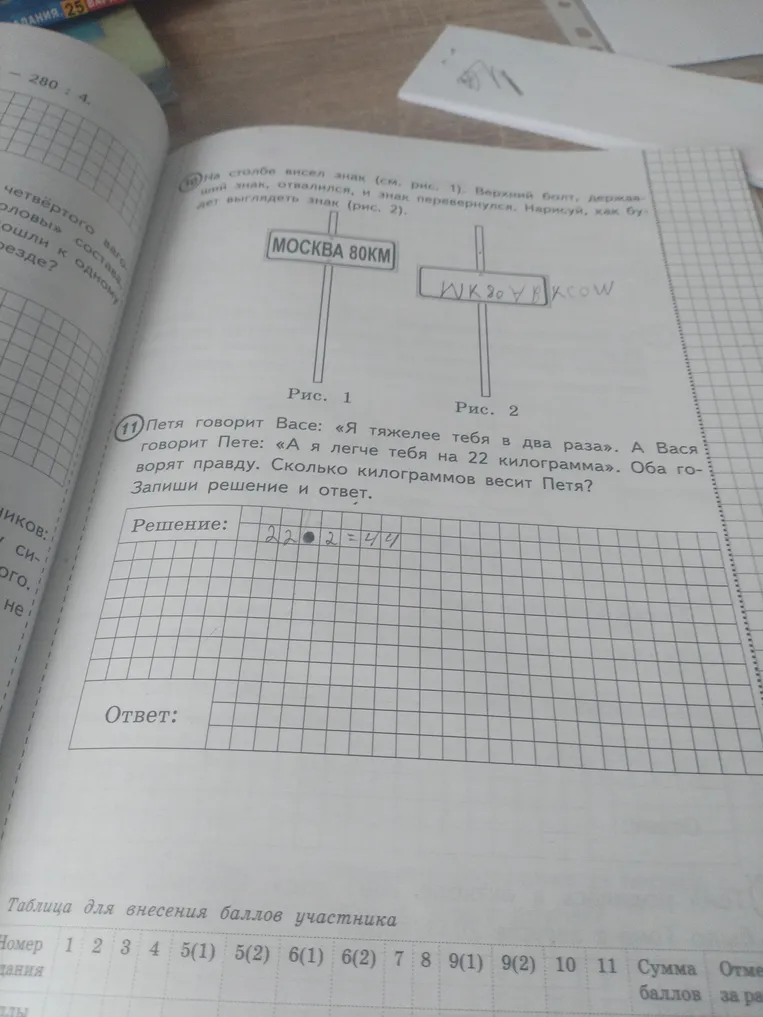 ДАНИЯ 25
– 280 : 4.
четвёртого
состава
ошли к одному
резде?
ников:
си-
ого.
не
10 На столбе висел знак (см. рис. 1). Верхний болт, держав-
ший знак, отвалился, и знак перевернулся. Нарисуй, как бу-
дет выглядеть знак (рис. 2).
МОСКВА 80КМ
Рис. 1
Рис. 2
11 Петя говорит Васе: «Я тяжелее тебя в два раза». А Вася
говорит Пете: «А я легче тебя на 22 килограмма». Оба го-
ворят правду. Сколько килограммов весит Петя?
Запиши решение и ответ.
Решение:
22 • 2 = 44
Ответ:
Таблица для внесения баллов участника
Номер 1 2 3 4 5(1) 5(2) 6(1) 6(2) 7 8 9(1) 9(2) 10 11 Сумма Отме
дания баллов за ра